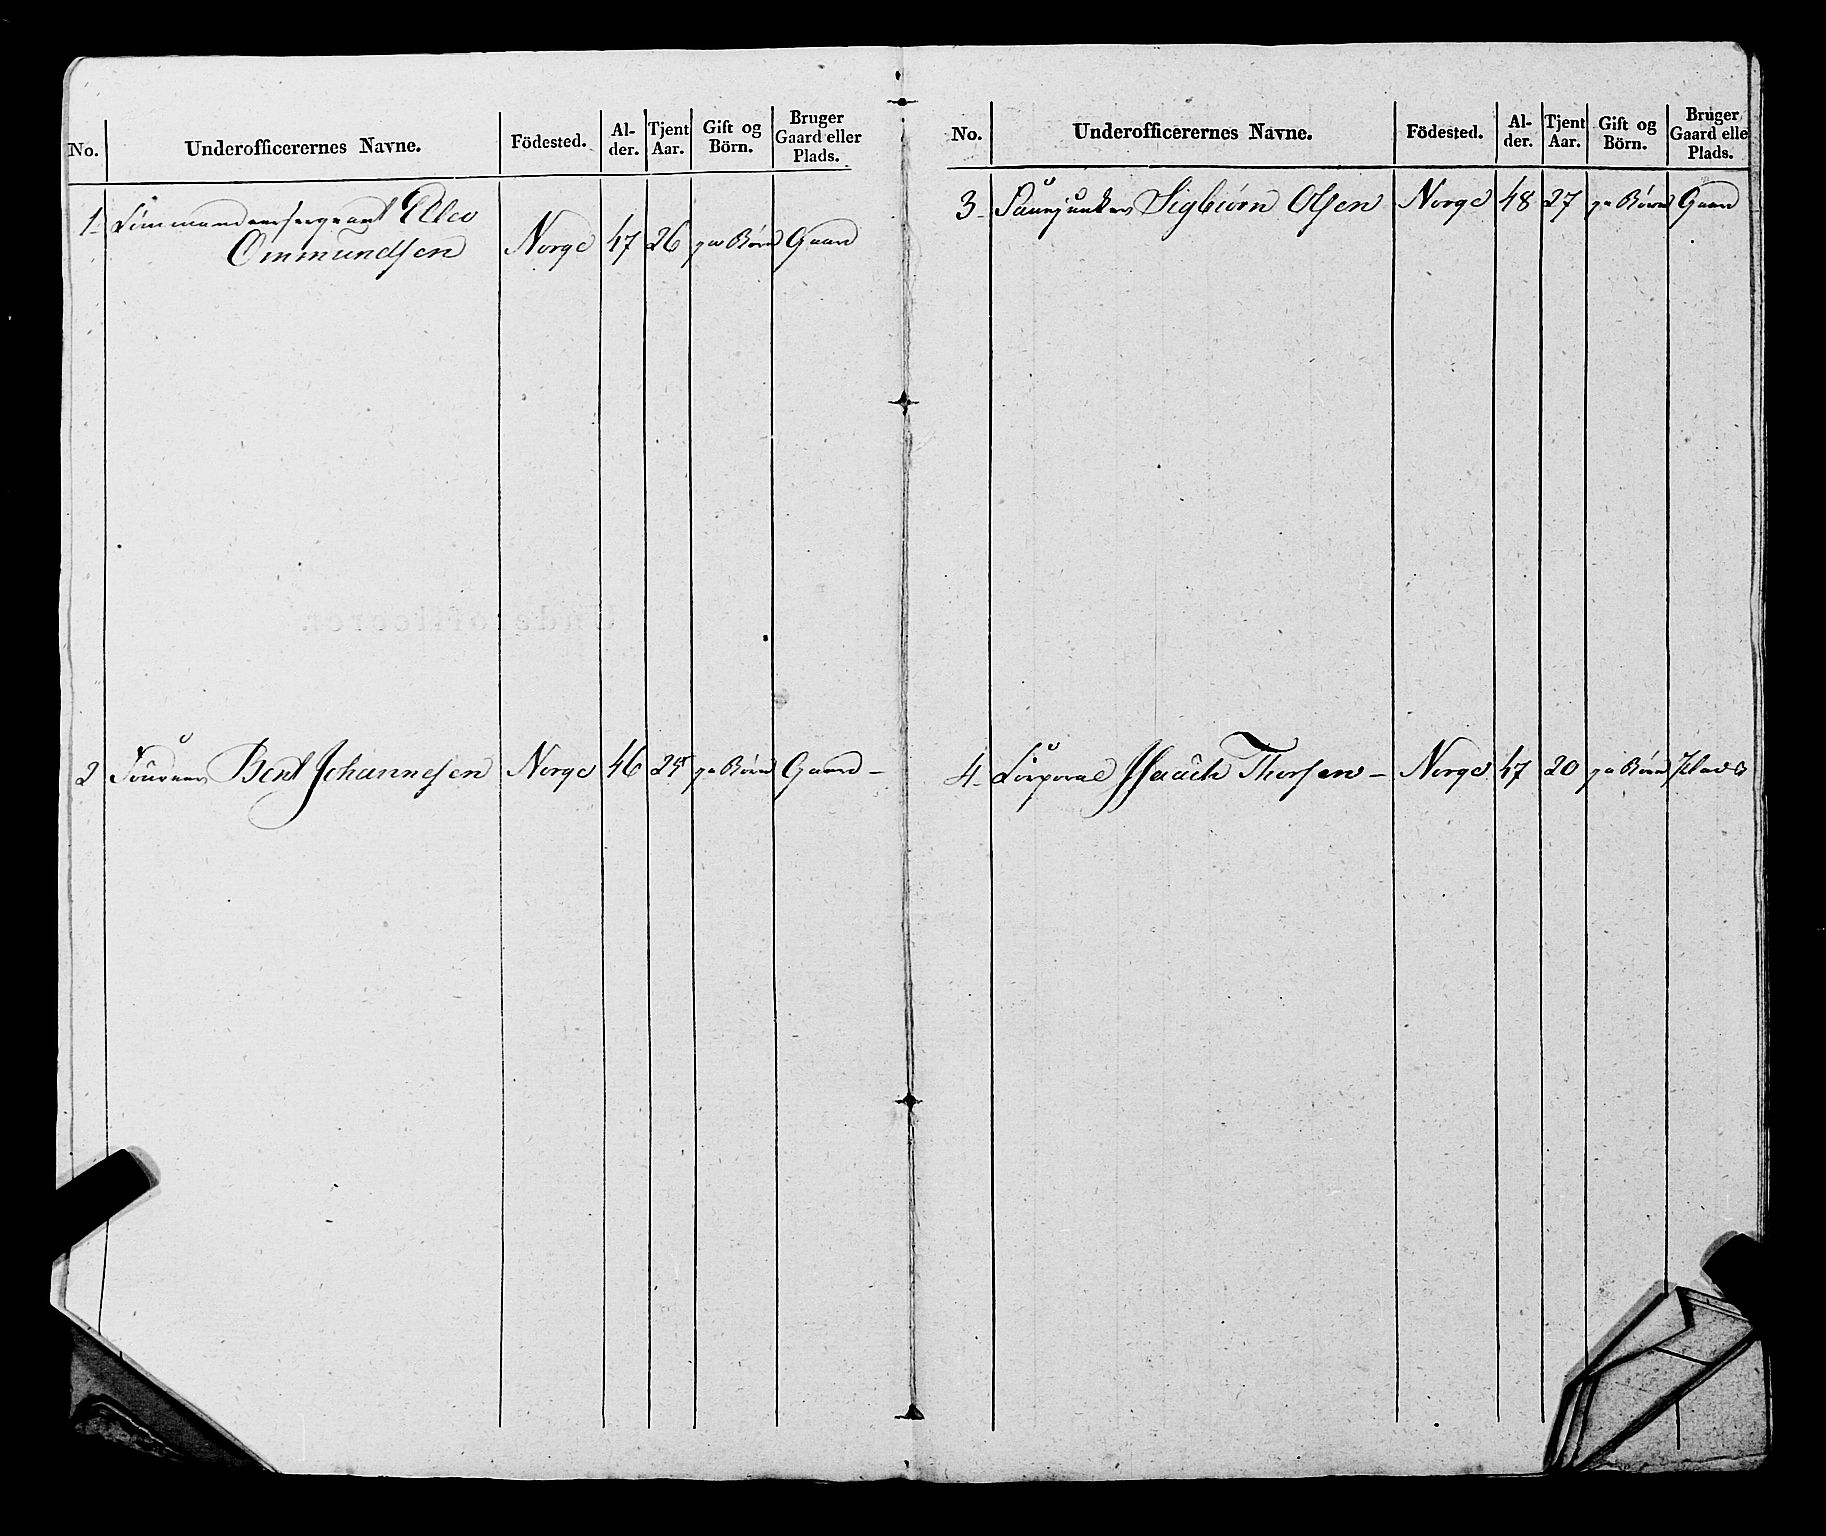 No. Underofficerernes Navne. Födested. Al-der. Tjent Aar. Gift og Börn. Bruger Gaard eller Plads.
1. Commandeersergeant Elev
Ommundsen Norge 47 26 ja Børn Gaard
2 Foureer Bent Johannesen Norge 46 25 ja Børn Gaard –
No. Underofficerernes Navne. Födested. Al-der. Tjent Aar. Gift og Börn. Bruger Gaard elle Plads.
3. Faunejunker Sigbiørn Olsen Norge 48 27 ja Børn Gaard
4. Corporal Thorsen – Norge 47 20 ja Børn Plads
Underofficerer.